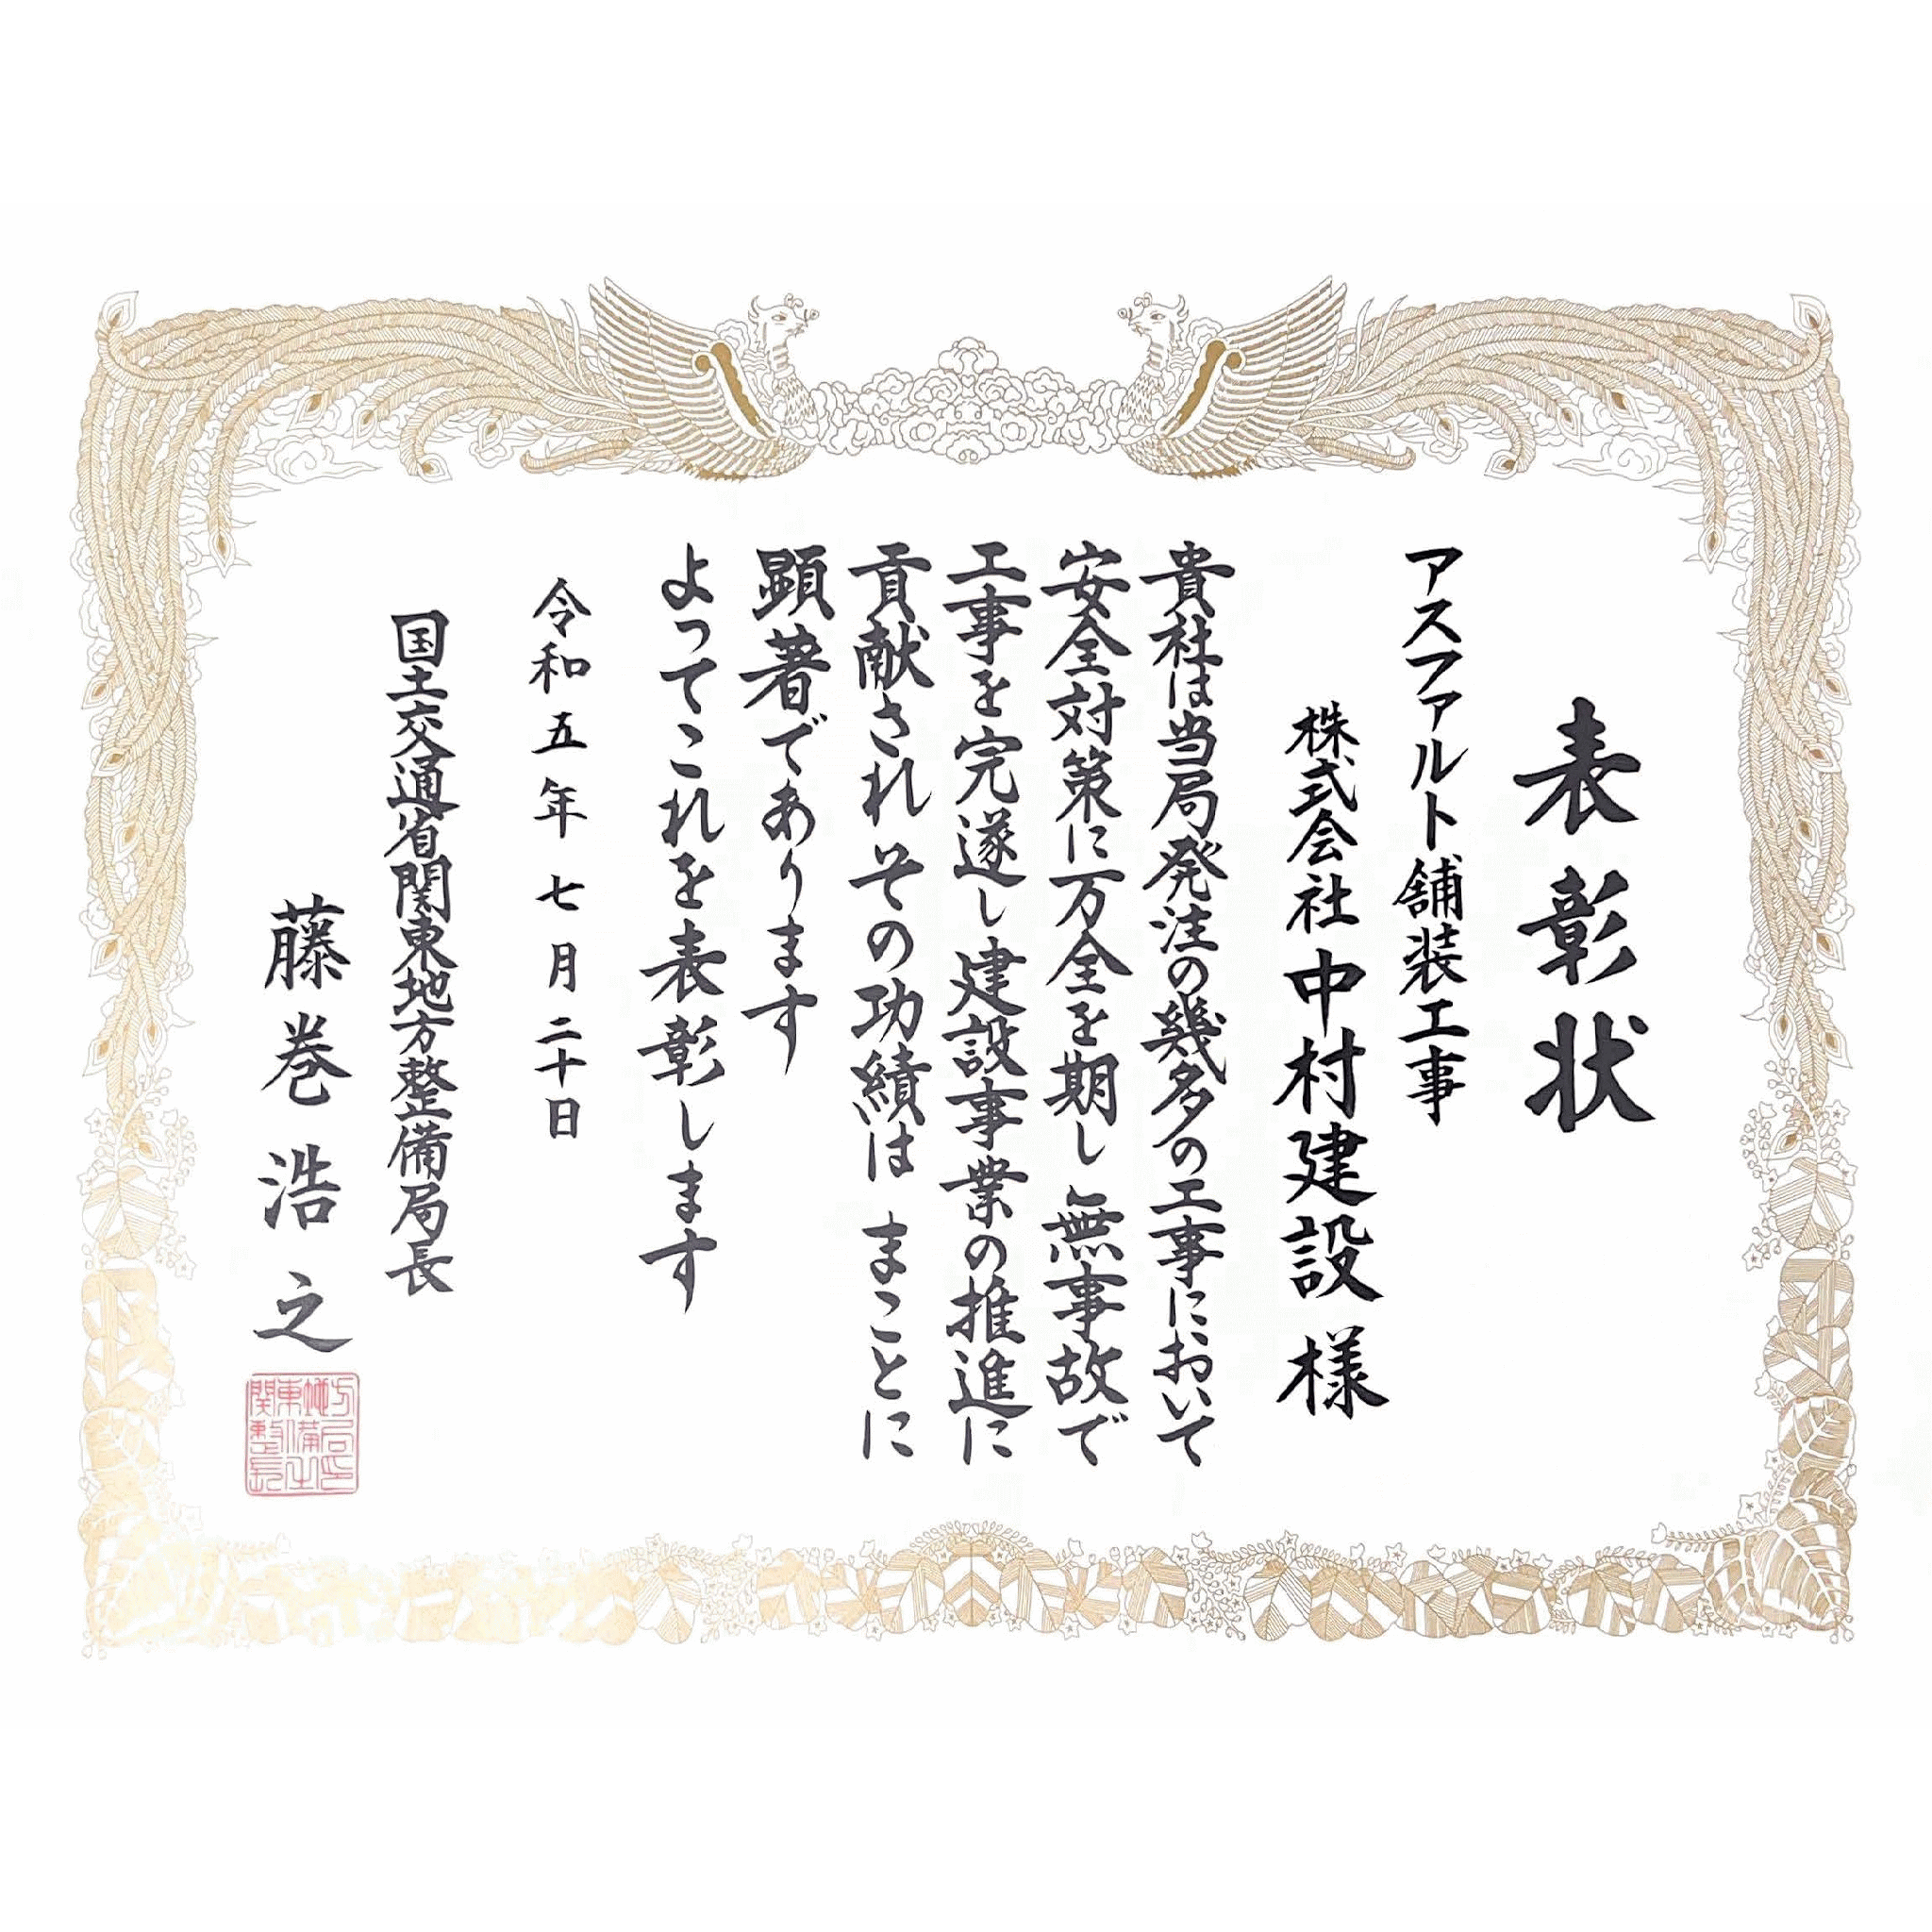 表彰状
アスファルト舗装工事
株式会社中村建設様
貴社は当局発注の幾多の工事において
安全対策に万全を期し無事故で
工事を完遂し建設事業の推進に
貢献されその功績は まことに
顕著であります
よってこれを表彰します
令和五年七月二十日
国土交通省関東地方整備局長
藤巻浩之